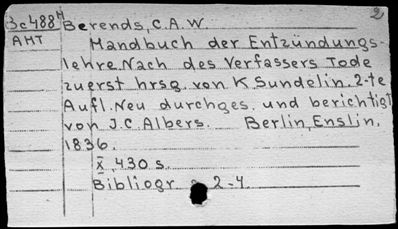 2
3c488H Berends, C.A.W.
AHT
Handbuch der Entzündungs-
lehre. Nach des Verfassers Tode
zuerst hrsg. von K. Sundelin. 2-te
Aufl. Neu durchges. und berichtigt
von J.C. Albers. Berlin, Enslin,
1836.
X, 430 s.
Bibliogr. 2-4.